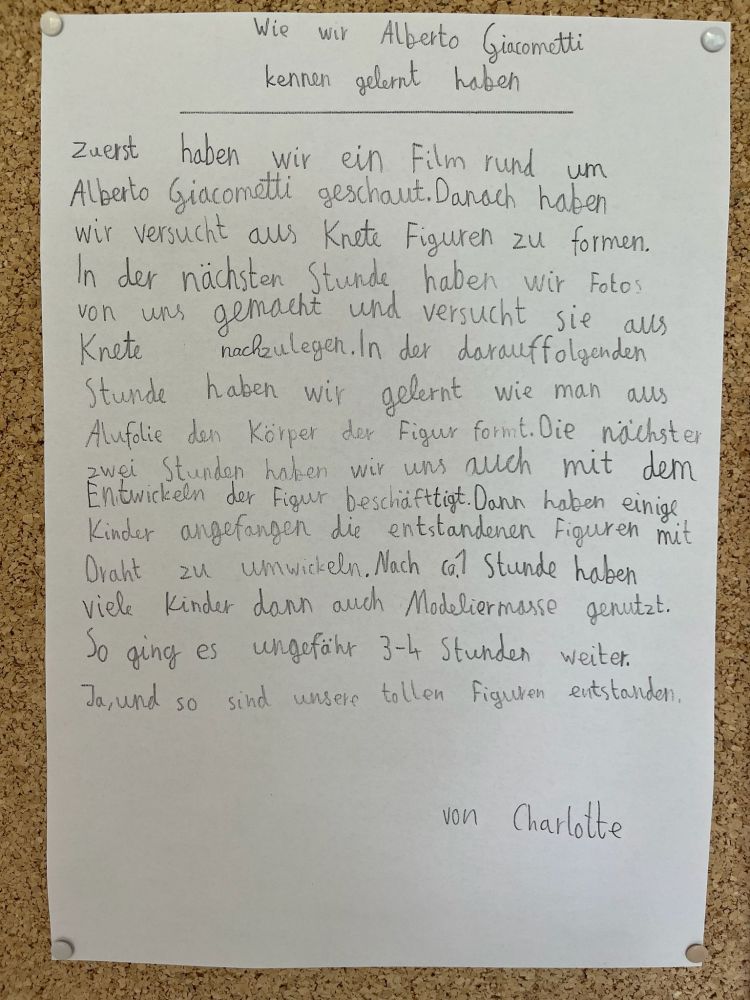 Wie wir Alberto Giacometti
kennen gelernt haben
Zuerst haben wir ein Film rund um
Alberto Giacometti geschaut. Danach haben
wir versucht aus Knete Figuren zu formen.
In der nächsten Stunde haben wir Fotos
von uns gemacht und versucht sie aus
Knete nachzulegen. In der darauffolgenden
Stunde haben wir gelernt wie man aus
Alufolie den Körper der Figur formt. Die nächster
zwei Stunden haben wir uns auch mit dem
Entwickeln der Figur beschäfttigt. Dann haben einige
Kinder angefangen die entstandenen Figuren mit
Draht zu umwickeln. Nach ca. 1 Stunde haben
viele Kinder dann auch Modeliermasse genutzt.
So ging es ungefähr 3-4 Stunden weiter.
Ja, und so sind unsere tollen Figuren entstanden.
von Charlotte